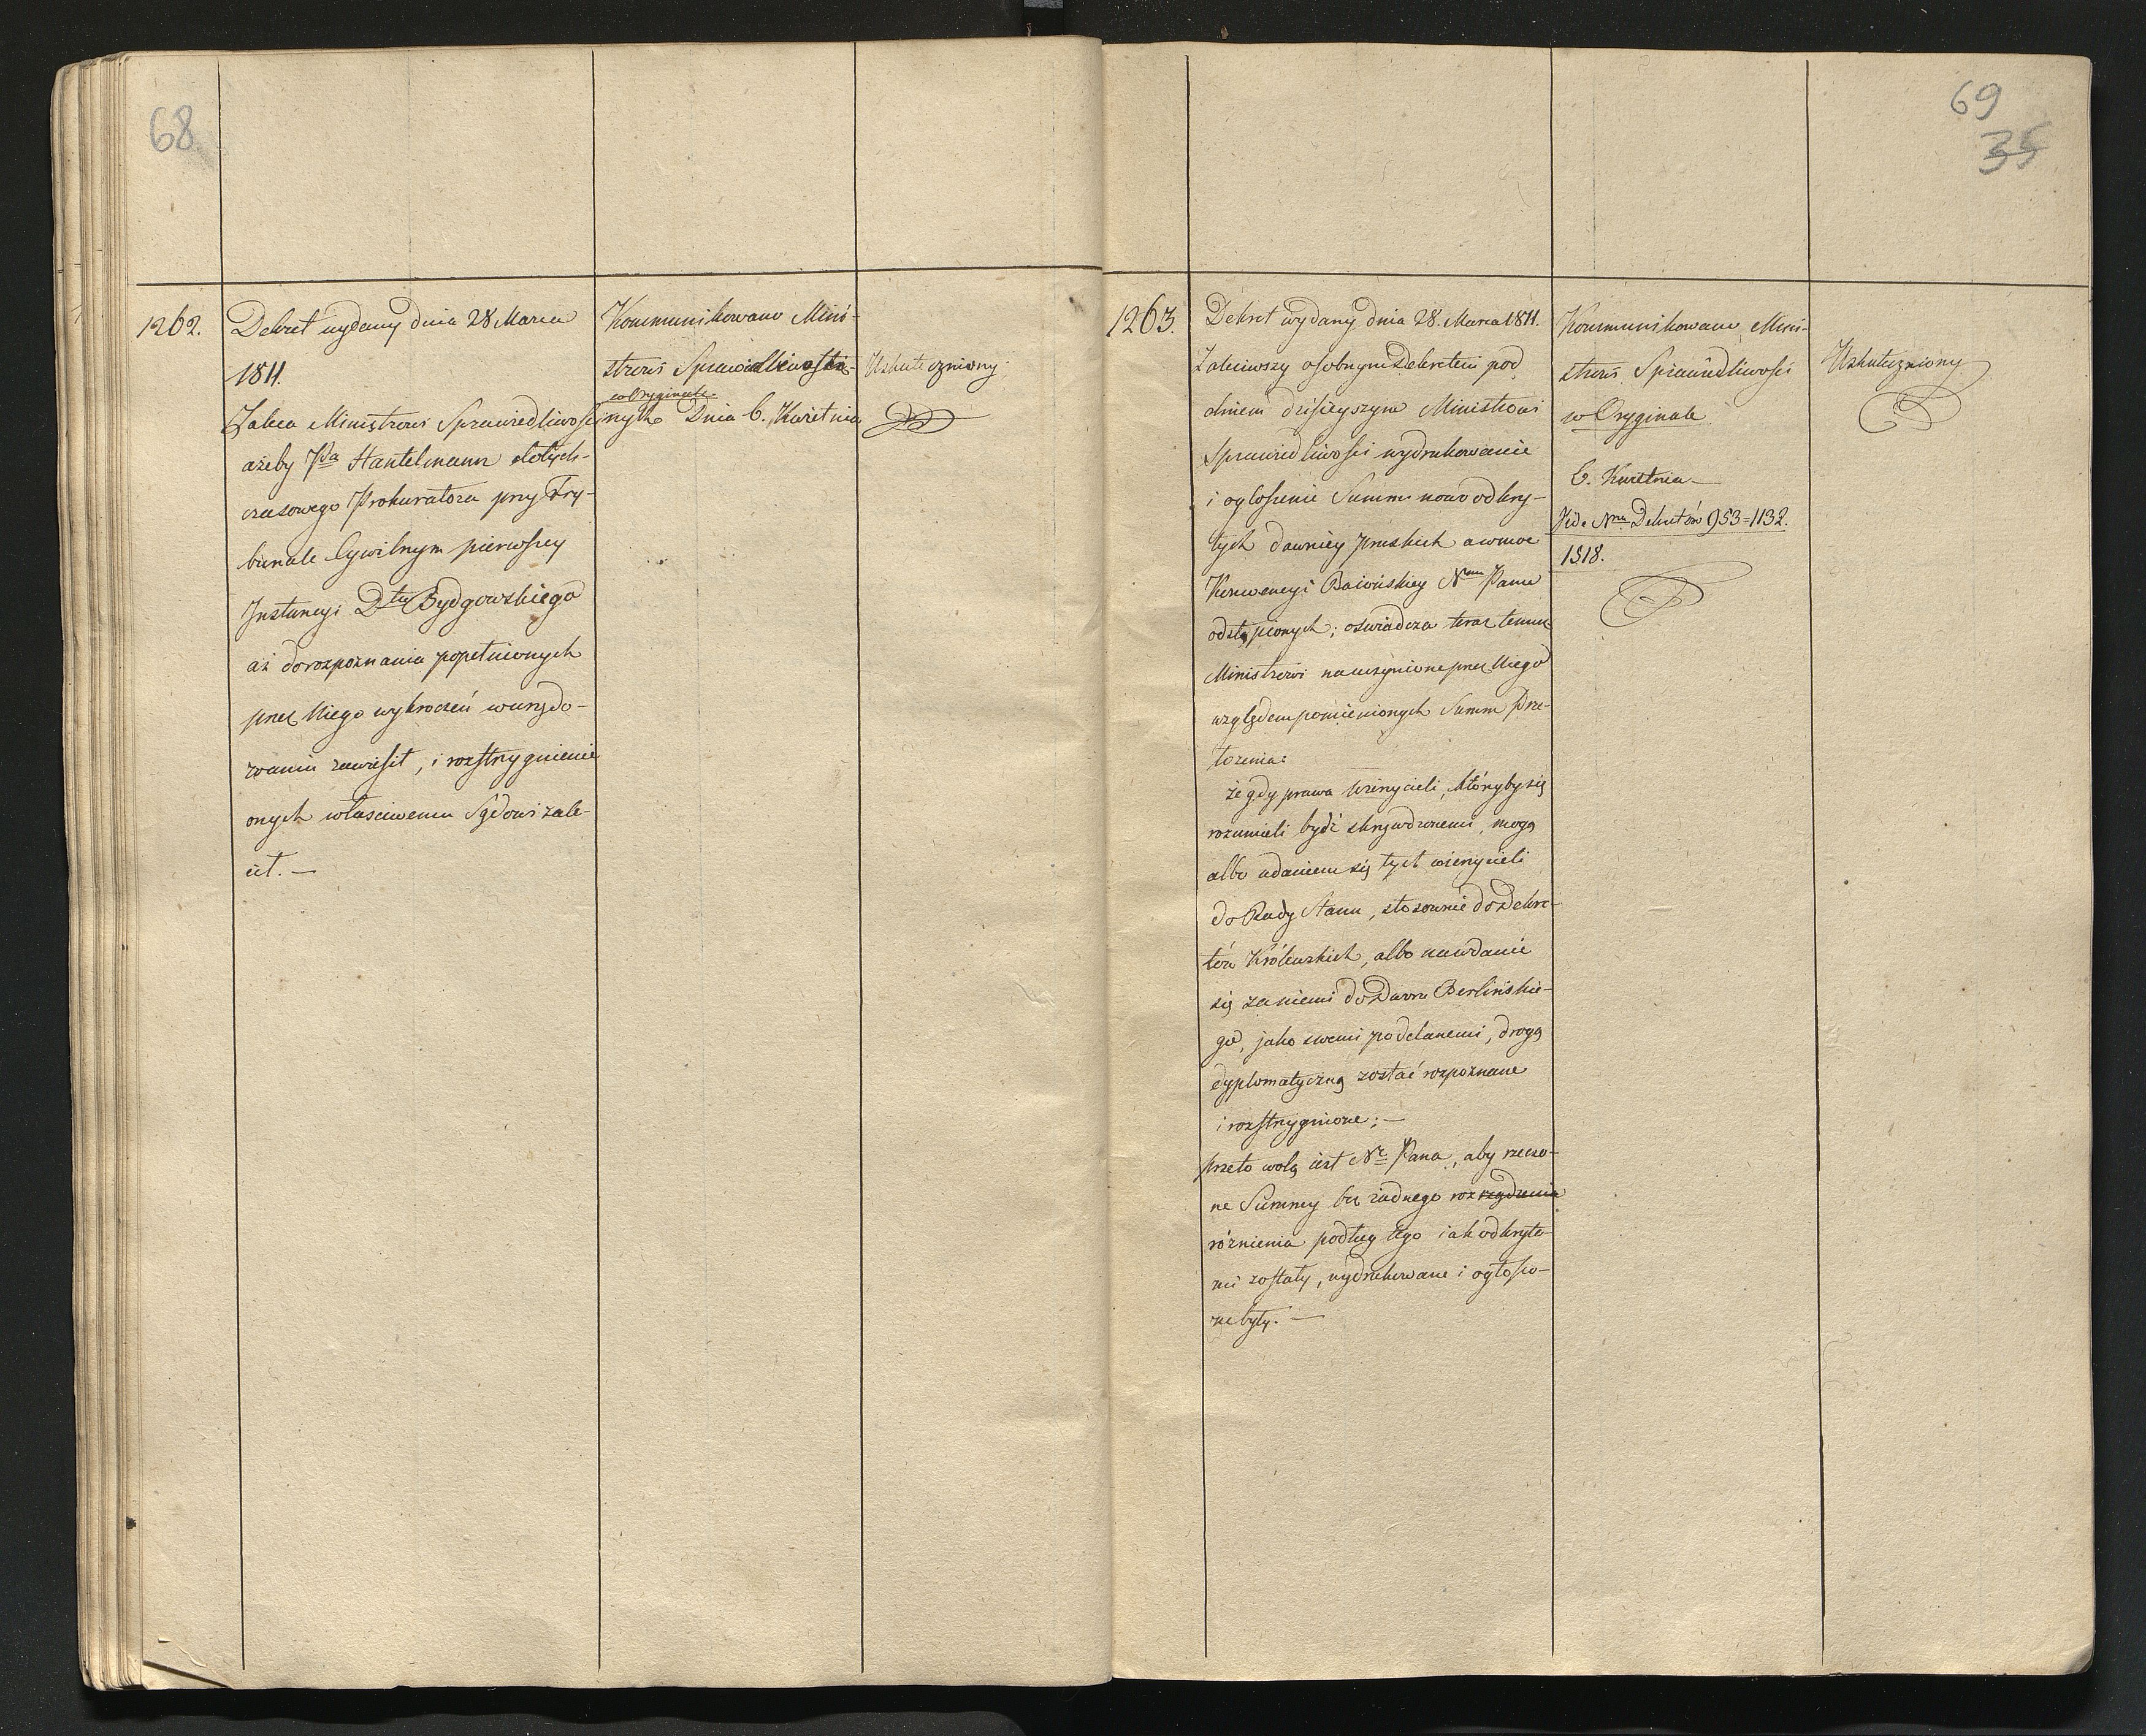 68
1262.
Dekret wydany dnia 28 Marca
1811.
Zaleca Ministrowi Sprawiedliwości
ażeby Pa Hantelmann dotych-
czasowego Prokuratora przy Try-
bunale Cywilnym pierwszey
Instancyi Dtu Bydgowskiego
aż do rozpoznania popełnionych
przez Niego wykroczeń w urzędo-
waniu zawiesił, i rozstrzygnienie
onych właściwemu Sądowi zale-
cił. —
Kommunikowano Mini-
strowi Sprawiedliwości
w Oryginale
Dnia 6. Kwietnia
Uskuteczniony
69
35
1263.
Dekret wydany dnia 28. Marca 1811.
Zaleciwszy osobnym Dekretem pod
dniem dzisieyszym Ministrowi
Sprawiedliwości wydrukowanie
i ogłoszenie Summ nowo odkry-
tych dawniey Pruskich a w moc
Konwencyi Baiońskiey Nmu Panu
odstąpionych; oświadcza teraz temu
Ministrowi na uczynione przez Niego
względem pomienionych Summ Prze-
łożenia:
że gdy prawa wierzycieli, którzyby się
rozumieli bydź skrzywdzonemi, mogą
albo udaniem się tych wierzycieli
do Rady Stanu, stosownie do Dekre-
tów Królewskich, albo nawdanie
się za niemi do Dworu Berlińskie-
go, jako swemi poddanemi, drogą
dyplomatyczną zostać rozpoznane
i rozstrzygnione; —
przeto wolą iest Nº Pana, aby rzeczo-
ne Summy bez żadnego rozrządzenia
różnienia podług tego iak odkryte-
mi zostały, wydrukowane i ogłoszo-
ne były. —
Kommunikowano Mini-
strowi Sprawiedliwości
w Oryginale
6. Kwietnia —
Vide Nra Dekretów 953=1132.
1318.
Uskuteczniony